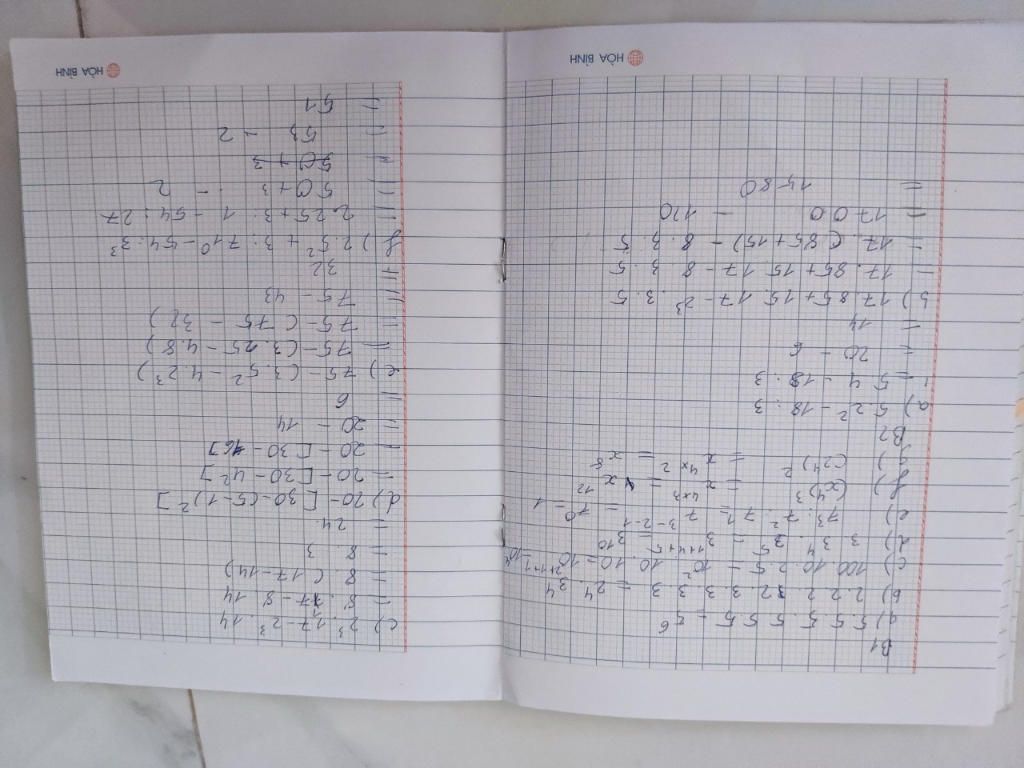 HÒA BÌNH
B1
a) 5.5.5.5.5.5 = 5⁶
b) 2.2.2.2.3.3.3.3 = 2⁴.3⁴
c) 100.10.2.5 = 10².10.10 = 10²⁺¹⁺¹ = 10⁴
d) 3.3⁴.3⁵ = 3¹⁺⁴⁺⁵ = 3¹⁰
e) 7³:7²:7 = 7³⁻²⁻¹ = 7⁰ = 1
f) (x⁴)³ = x⁴ˣ³ = x¹²
g) (2⁴)² = x⁴ˣ² = x⁸
B2
a) 5.2² - 18:3
= 5.4 - 18:3
= 20 - 6
= 14
b) 17.85+15.17-2³.3.5
= 17.85+15.17-8.3.5
= 17.(85+15)-8.3.5
= 1700 - 120
= 1580
HÒA BÌNH
c) 2³.17-2³.14
= 8.17-8.14
= 8.(17-14)
= 8.3
= 24
d) 20-[30-(5-1)²]
= 20-[30-4²]
= 20-[30-16]
= 20-14
= 6
e) 75-(3.5²-4.2³)
= 75-(3.25-4.8)
= 75-(75-32)
= 75-43
= 32
f) 2.5²+3:71⁰-54:3³
= 2.25+3:1-54:27
= 50+3 - 2
= 50+3
= 53 - 2
= 51